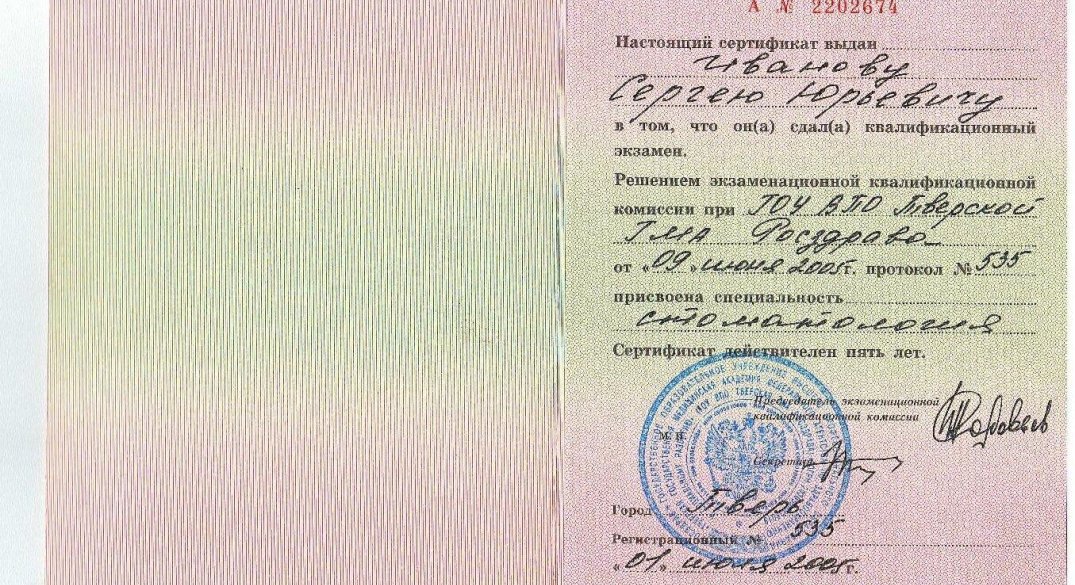 А № 2202674
Настоящий сертификат выдан
Иванову
Сергею Юрьевичу
в том, что он(а) сдал(а) квалификационный
экзамен.
Решением экзаменационной квалификационной
комиссии при ГОУ ВПО Тверской
ГМА Росздрава
от «09» июня 2005г. протокол № 535
присвоена специальность
стоматология
Сертификат действителен пять лет.
Председатель экзаменационной
квалификационной комиссии
М. П.
Секретарь
Город Тверь
Регистрационный № 535
«01» июня 2005г.